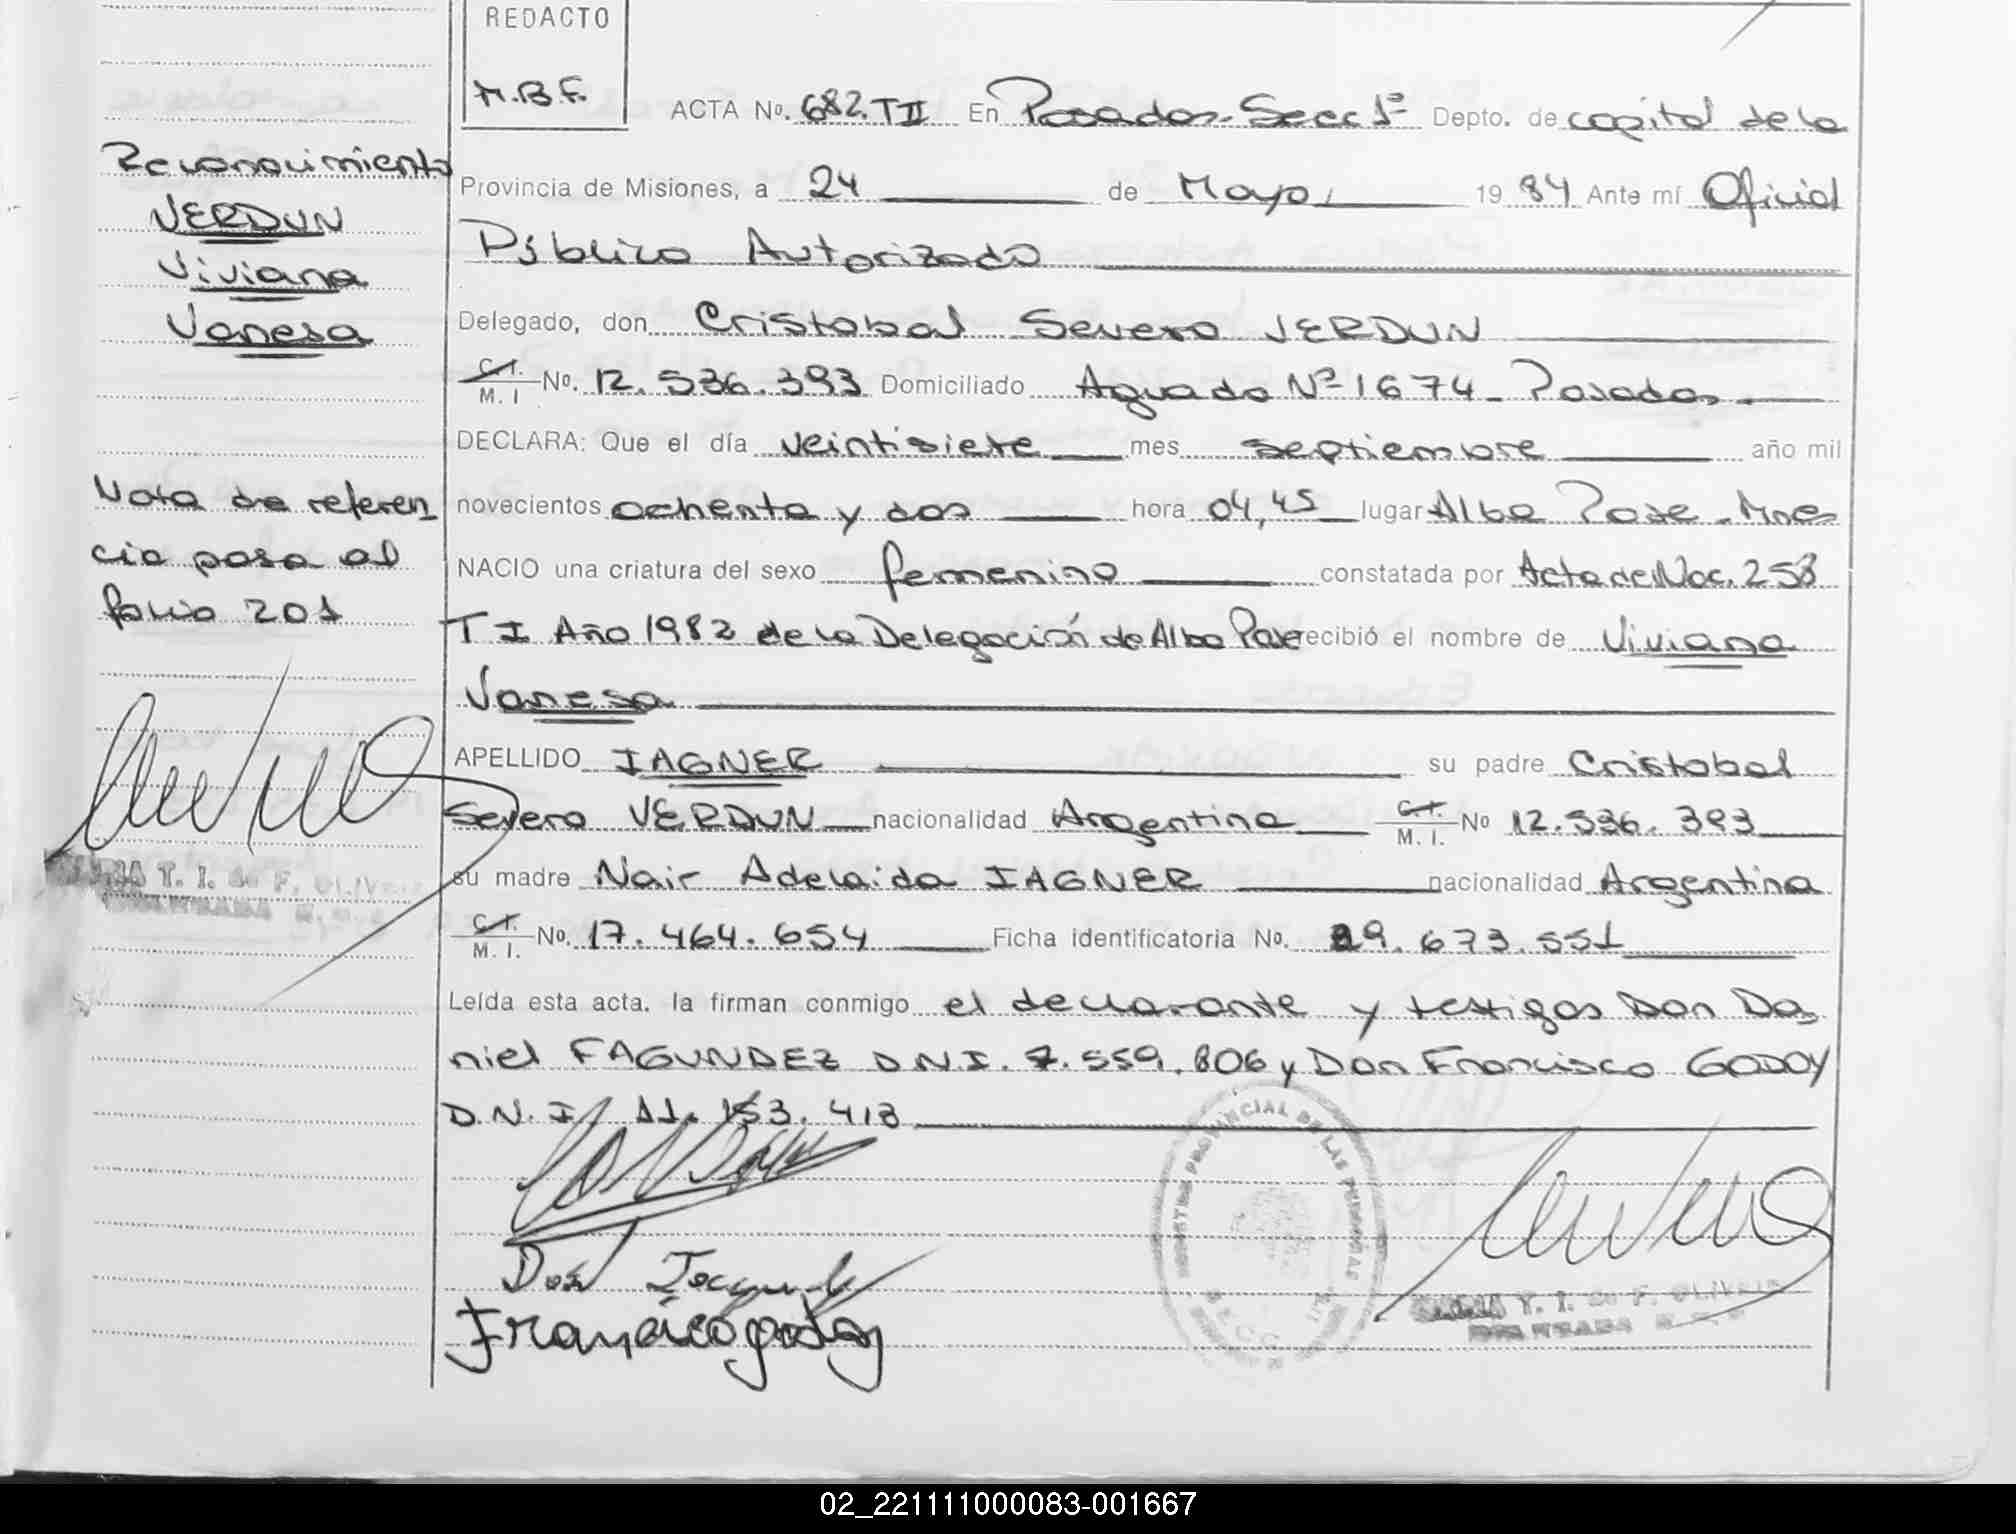 REDACTO
M.B.F.
ACTA No. 682.TII En Posadas-Secc 1ª Depto. de capital de la
Provincia de Misiones, a 24 de Mayo, 1984 Ante mí Oficial
Público Autorizado
Delegado, don Cristobal Severo VERDUN
C.I. M. I No. 12.536.393 Domiciliado Aguado Nº 1674 - Posadas.
DECLARA: Que el día veintisiete mes septiembre año mil
novecientos ochenta y dos hora 04,45 lugar Alba Pose - Mnes
NACIO una criatura del sexo femenino constatada por Acta de Nac. 258
T I Año 1982 de la Delegación de Alba Pose recibió el nombre de Viviana
Vanesa
APELLIDO IAGNER su padre Cristobal
Severo VERDUN nacionalidad Argentina C.I. M. I. No 12.536.393
su madre Nair Adelaida IAGNER nacionalidad Argentina
C.I. M. I. No. 17.464.654 Ficha identificatoria No. 29.673.551
Leída esta acta. la firman conmigo el declarante y testigos Don Da
niel FAGUNDEZ D.N.I. 7.559.806 y Don Francisco GODOY
D.N.I. 11.153.418
Francisco godoy
Reconocimiento
VERDUN
Viviana
Vanesa
Nota de referen
cia pasa al
folio 201
T. I. de F. OLIVEIRA
REGISTRO PROVINCIAL DE LAS PERSONAS
SECC.
T. I. de F. OLIVEIRA
02_221111000083-001667